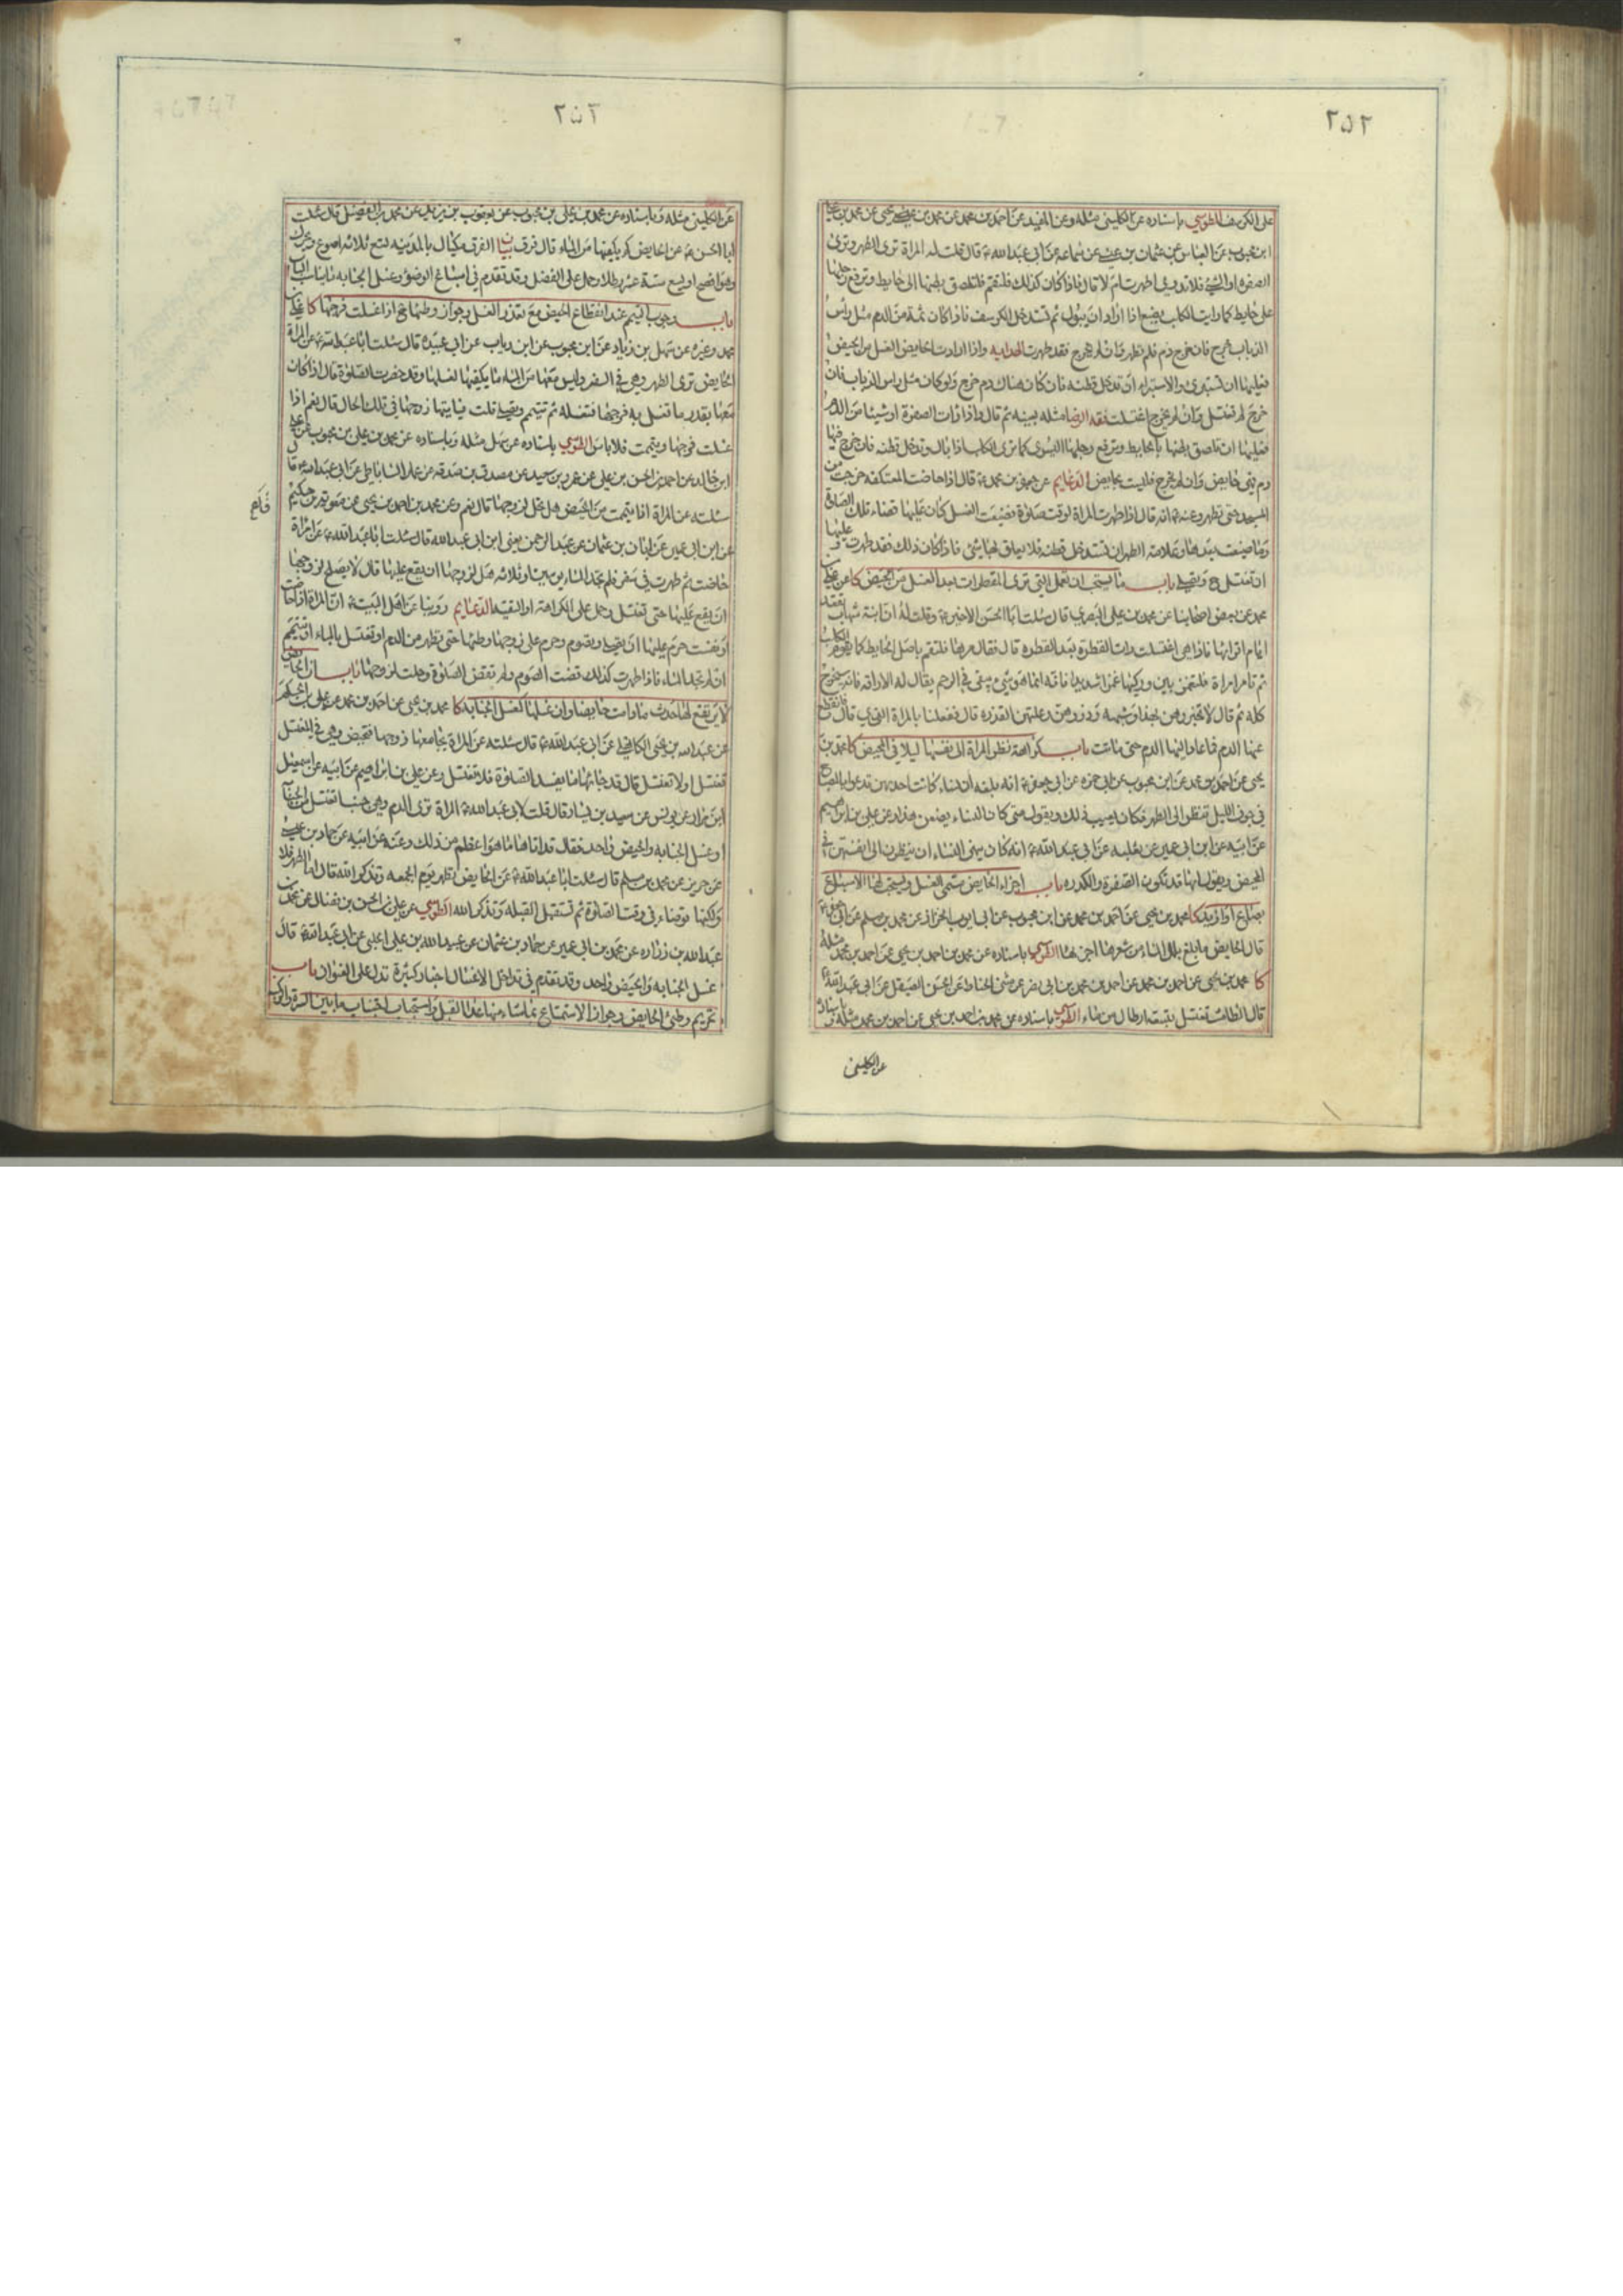 ۲۵۲
على الكرسف الطوسي باسناده عن الكليني مثله وعن المفيد عن احمد بن محمد عن محمد بن يحيى عن محمد بن علي
ابن محبوب عن العباس عن عثمان بن عيسى عن سماعة عن ابي عبد الله ع قال قلت له المراة ترى الطهر وترى
الصفرة او الشيء فلا تدري اطهرت ام لا قال فاذا كان كذلك فلتقم فلتلصق بطنها الى حايط وترفع رجلها
على حايط كما رايت الكلب يصنع اذا اراد ان يبول ثم تستدخل الكرسف فاذا كان ثمة من الدم مثل راس
الذباب خرج فان خرج دم فلم تطهر وان لم يخرج فقد طهرت الهداية واذا ارادت الحايض الغسل من الحيض
فعليها ان تستبرئ والاستبراء ان تدخل قطنة فان كان هناك دم خرج ولو كان مثل راس الذباب فان
خرج لم تغتسل وان لم يخرج اغتسلت فقه الرضا مثله بعينه ثم قال واذا رات الصفرة او شيئا من الدم
فعليها ان تلصق بطنها بالحايط وترفع رجلها اليسرى كما ترى الكلب اذا بال وتدخل قطنة فان خرج فيها
دم فهي حايض وان لم يخرج فليست بحايض الدعايم عن جعفر بن محمد ع قال اذا حاضت المعتكفة خرجت من
المسجد حتى تطهر وعنه ع انه قال اذا طهرت المراة لوقت صلوة فضيعت الغسل كان عليها قضاء تلك الصلوة
وما ضيعت بعدها وعلامة الطهر ان تستدخل قطنة فلا يعلق بها شي فاذا كان ذلك فقد طهرت وعليها
ان تغتسل ح وتصلي باب ما يستحب ان تعمل التي ترى القطرات بعد الغسل من الحيض كا عن علي بن
محمد عن بعض اصحابنا عن محمد بن علي البصري قال سئلت ابا الحسن الاخير ع وقلت له ان ابنة شهاب تقعد
ايام اقرائها فاذا هي اغتسلت رات القطرة بعد القطرة قال فقال مرها فلتقم باصل الحايط كما يقوم الكلب
ثم تامر امراة فلتغمز بين وركيها غمزا شديدا فانه انما هو شيء يبقى في الرحم يقال له الاراقة فانه سيخرج
كله ثم قال لا تخبروهن بهذا وشبهه وذروهن وعلتهن القذرة قال ففعلنا بالمراة الذي قال فانقطع
عنها الدم فما عاد اليها الدم حتى ماتت باب كراهة نظر المراة الى نفسها ليلا في المحيض كا محمد بن
يحيى عن احمد بن محمد عن ابن محبوب عن ابي حمزة عن ابي جعفر ع انه بلغه ان نساء كانت احديهن تدعو بالمصباح
في جوف الليل تنظر الى الطهر فكان يعيب ذلك ويقول متى كان النساء يصنعن هذا وعن علي بن ابراهيم
عن ابيه عن ابن ابي عمير عن ثعلبة عن ابي عبد الله ع انه كان ينهى النساء ان ينظرن الى انفسهن في
المحيض ويقول انها قد تكون الصفرة والكدرة باب اجزاء الحايض مسمى الغسل ويستحب لها الاسباغ
بصاع او ازيد كا محمد بن يحيى عن احمد بن محمد عن ابن محبوب عن ابي ايوب الخزاز عن محمد بن مسلم عن ابي جعفر ع
قال الحايض ما بلغ بلل الماء من شعرها اجزءها الطوسي باسناده عن محمد بن احمد بن يحيى عن احمد بن محمد مثله
كا محمد بن يحيى عن احمد بن محمد عن احمد بن محمد بن ابي نصر عن مثنى الحناط عن الحسن الصيقل عن ابي عبد الله ع
قال الطامث تغتسل بتسعة ارطال من ماء الطوسي باسناده عن محمد بن احمد بن يحيى عن احمد بن محمد مثله وباسناده
عن الكليني
۲۵۳
عن الكليني مثله وباسناده عن محمد بن علي بن محبوب عن يعقوب بن يزيد عن محمد بن الفضيل قال سئلت
ابا الحسن ع عن الحايض كم يكفيها من الماء قال فرق بيان الفرق مكيال بالمدينة يسع ثلاثة اصوع ويحرك
وهو افصح او يسع ستة عشر رطلا وحمل على الفضل وقد تقدم في اسباغ الوضوء وغسل الجنابة
باب وجوب التيمم عند انقطاع الحيض مع تعذر الغسل وجواز وطئها ح اذا غسلت فرجها كا علي بن
محمد وغيره عن سهل بن زياد عن ابن محبوب عن ابن رياب عن ابي عبيدة قال سئلت ابا عبد الله ع عن المراة
الحايض ترى الطهر وهي في السفر وليس معها من الماء ما يكفيها لغسلها وقد حضرت الصلوة قال اذا كان
معها بقدر ما تغسل به فرجها فتغسله ثم تتيمم وتصلي قلت فياتيها زوجها في تلك الحال قال نعم اذا
غسلت فرجها وتيممت فلا باس الطوسي باسناده عن سهل مثله وباسناده عن محمد بن علي بن محبوب عن احمد
ابن خالد عن احمد بن الحسن بن علي عن عمرو بن سعيد عن مصدق بن صدقة عن عمار الساباطي عن ابي عبد الله ع قال
سئلته عن المراة اذا تيممت من الحيض هل تحل لزوجها قال نعم وعن محمد بن احمد بن يحيى عن معوية بن حكيم
عن ابن ابي عمير عن ابان بن عثمان عن عبد الرحمن يعني ابن ابي عبد الله قال سئلت ابا عبد الله ع عن امراة
حاضت ثم طهرت في سفر فلم تجد الماء يومين او ثلاثة هل لزوجها ان يقع عليها قال لا يصلح لزوجها
ان يقع عليها حتى تغتسل وحمل على الكراهة او التقية الدعايم روينا عن اهل البيت ع ان المراة اذا حاضت
او نفست حرم عليها ان تصلي وتصوم وحرم على زوجها وطئها حتى تطهر من الدم او تغتسل بالماء او تتيمم
ان لم تجد الماء فاذا طهرت كذلك قضت الصوم ولم تقض الصلوة وحلت لزوجها باب ان الحايض
لا يرتفع لها حدث ما دامت حايضا وان غسلها كغسل الجنابة كا محمد بن يحيى عن احمد بن محمد عن علي بن الحكم
عن عبد الله بن يحيى الكاهلي عن ابي عبد الله ع قال سئلته عن المراة يجامعها زوجها فتحيض وهي في المغتسل
تغتسل او لا تغتسل قال قد جائها ما يفسد الصلوة فلا تغتسل وعن علي بن ابراهيم عن ابيه عن اسمعيل
ابن مرار عن يونس عن سعيد بن يسار قال قلت لابي عبد الله ع المراة ترى الدم وهي جنب اتغتسل من الجنابة
او غسل الجنابة والحيض واحد فقال قد اتاها ما هو اعظم من ذلك وعنه عن ابيه عن حماد بن عيسى
عن حريز عن محمد بن مسلم قال سئلت ابا عبد الله ع عن الحايض تطهر يوم الجمعة وتذكر الله قال اما الطهر فلا
ولكنها توضاء في وقت الصلوة ثم تستقبل القبلة وتذكر الله الطوسي عن علي بن الحسن بن فضال عن محمد بن
عبد الله بن زرارة عن محمد بن ابي عمير عن حماد بن عثمان عن عبيد الله بن علي الحلبي عن ابي عبد الله ع قال
غسل الجنابة والحيض واحد وقد تقدم في تداخل الاغسال اخبار كثيرة تدل على العنوان باب
تحريم وطئ الحايض وجواز الاستمتاع بما شاء منها عدا القبل واستحباب اجتناب ما بين السرة والركبة